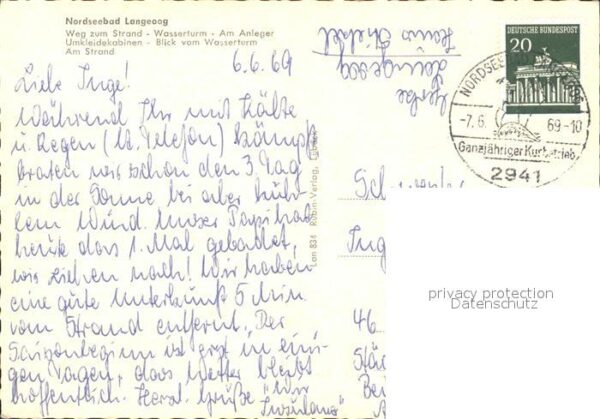 Nordseebad Langeoog
Weg zum Strand - Wasserturm - Am Anleger
Umkleidekabinen - Blick vom Wasserturm
Am Strand
6.6.69
Liebe Inge!
Während Ihr mit Kälte
u. Regen (lt. Telefon) kämpft
braten wir schon den 3 Tag
in der Sonne bei aber küh-
lem Wind. Unser Papi hat
heute das 1. Mal gebadet,
wir ziehen nach! Wir haben
eine gute Unterkunft 5 Min.
vom Strand entfernt. Der
Saisonbeginn ist erst in eini-
gen Tagen, das Wetter bleibt
hoffentlich. Herzl. Grüße
Langeoog
Haus
Lan 834 Rubin-Verlag,
DEUTSCHE BUNDESPOST
20
NORDSEE
-7.6. 69-10
Ganzjähriger Kurbetrieb
2941
46
privacy protection
Datenschutz